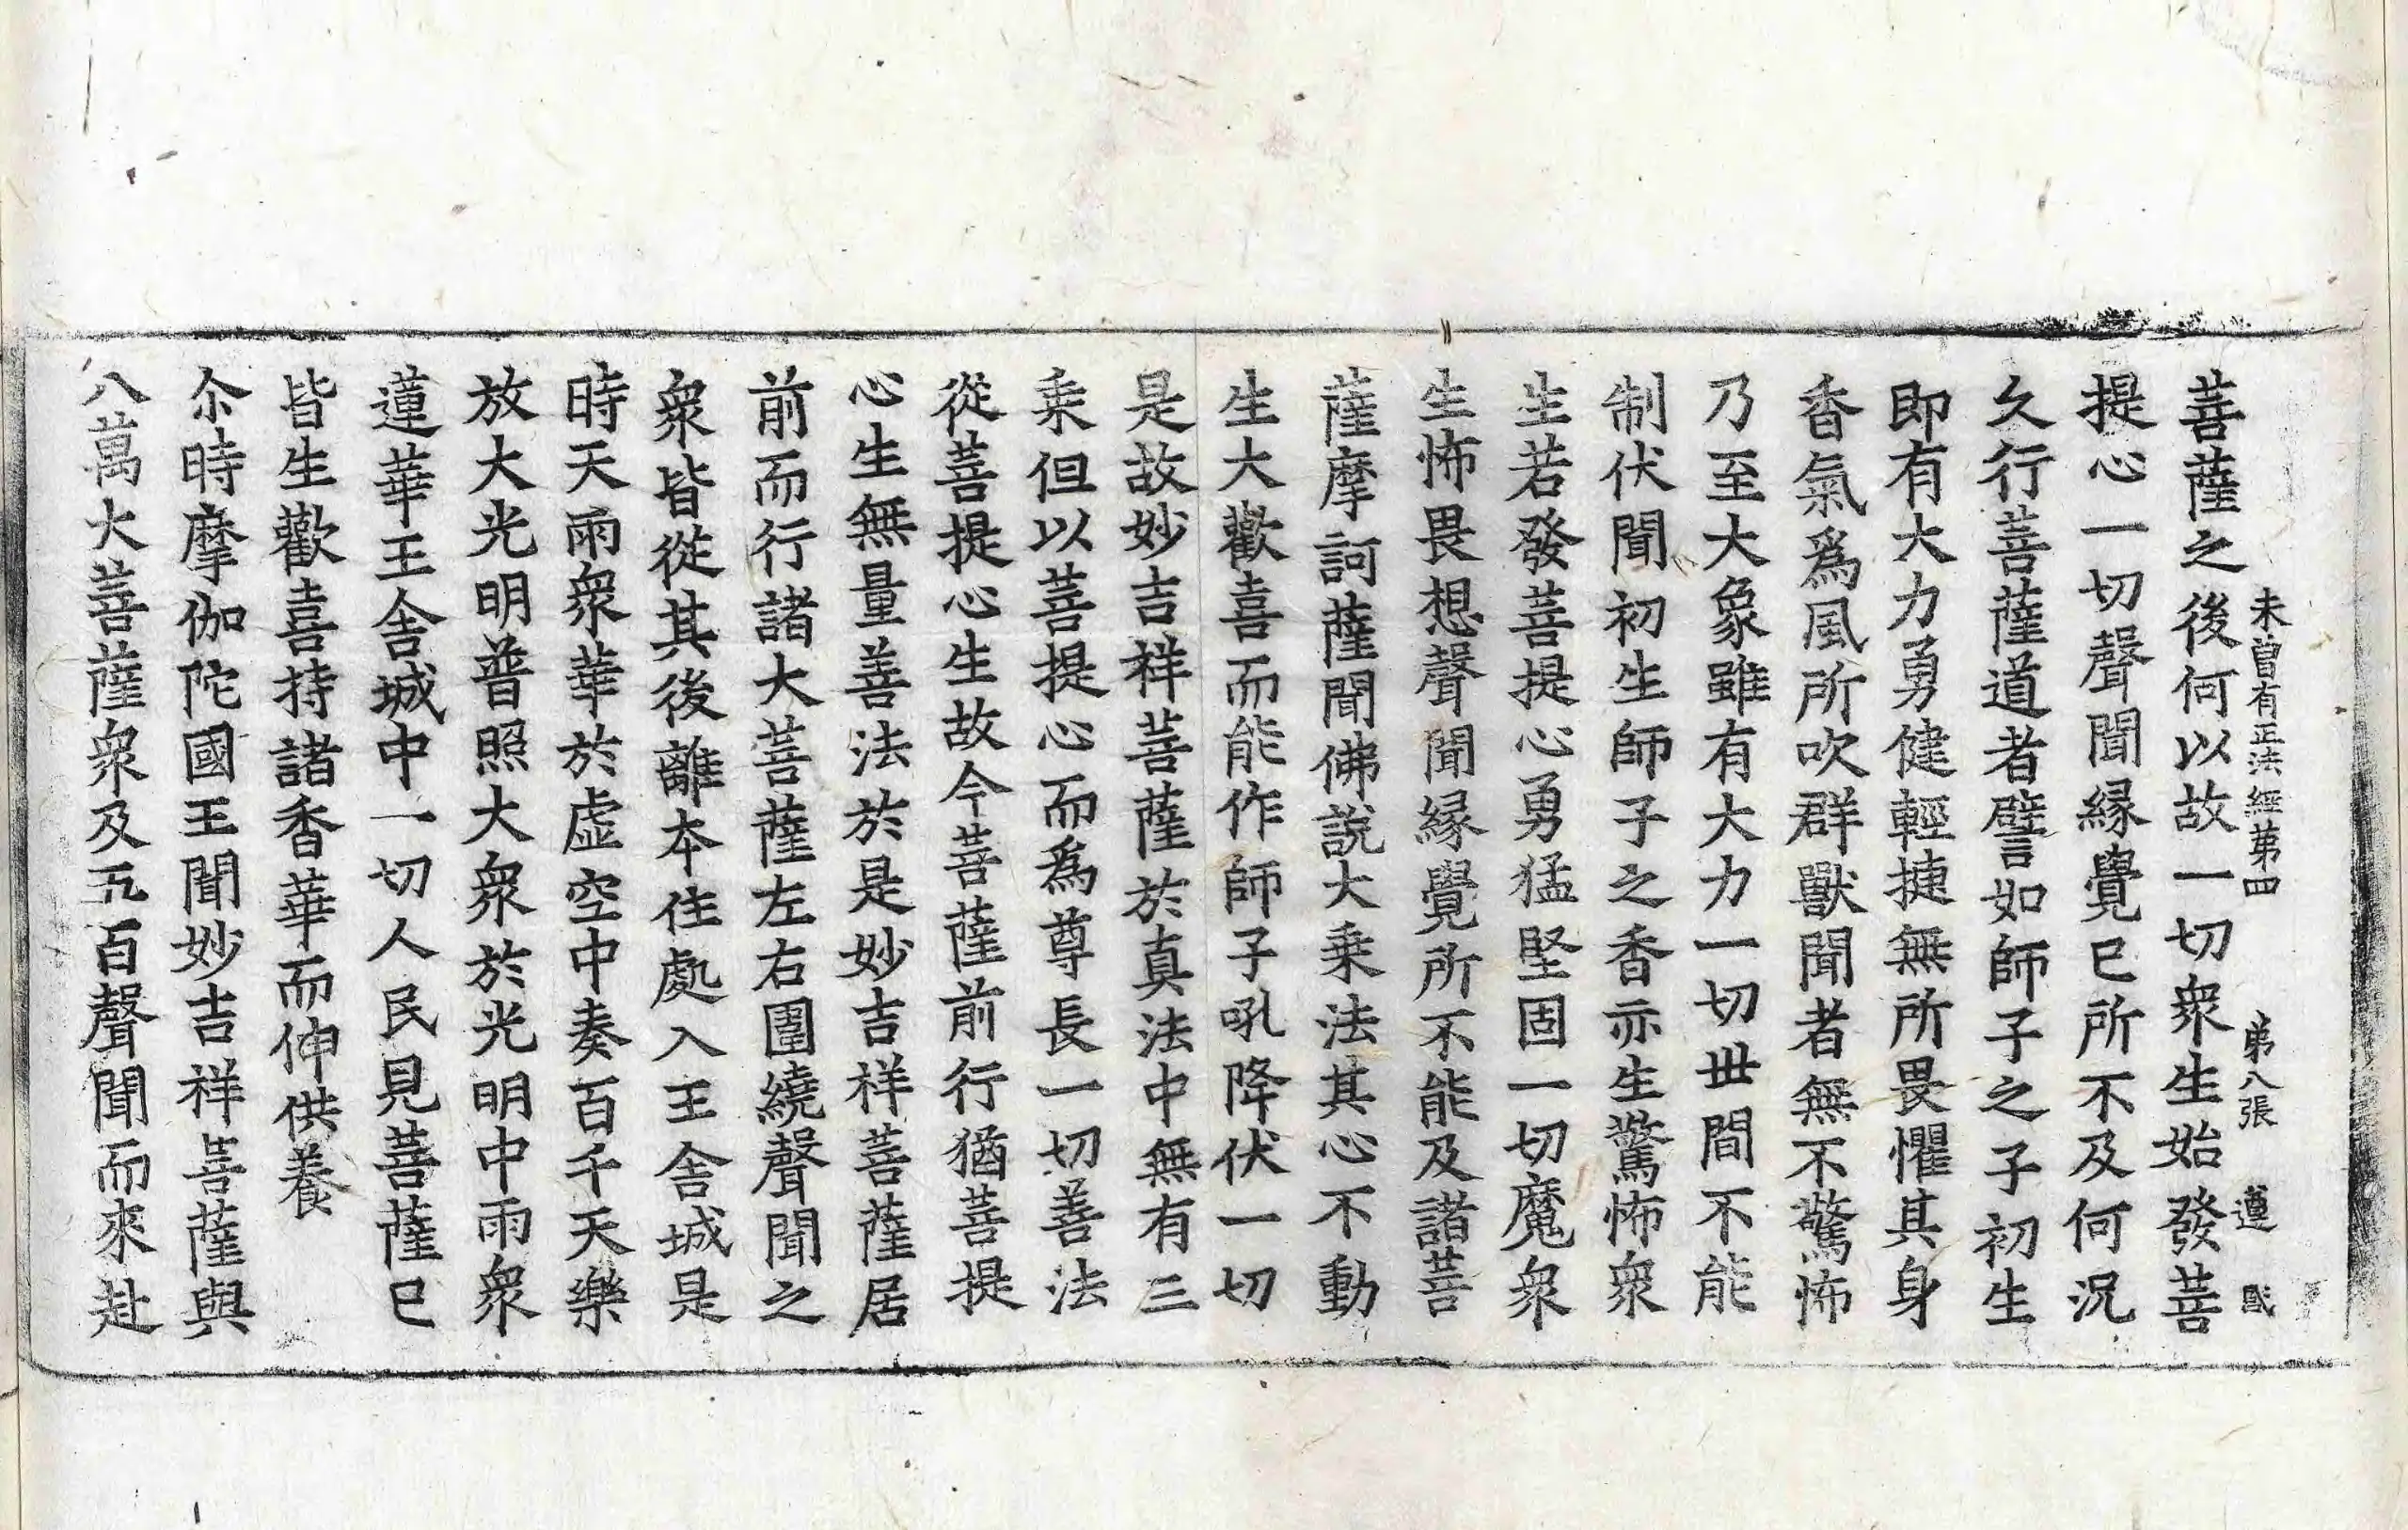 未曾有正法經第四 第八張 遵
菩薩之後何以故一切衆生始發菩
提心一切聲聞緣覺已所不及何況
久行菩薩道者譬如師子之子初生
即有大力勇健輕捷無所畏懼其身
香氣爲風所吹群獸聞者無不驚怖
乃至大象雖有大力一切世間不能
制伏聞初生師子之香亦生驚怖衆
生若發菩提心勇猛堅固一切魔衆
生怖畏想聲聞緣覺所不能及諸菩
薩摩訶薩聞佛說大乗法其心不動
生大歡喜而能作師子吼降伏一切
是故妙吉祥菩薩於真法中無有三
乗但以菩提心而爲尊長一切善法
從菩提心生故今菩薩前行猶菩提
心生無量善法於是妙吉祥菩薩居
前而行諸大菩薩左右圍繞聲聞之
衆皆從其後離本住處入王舍城是
時天雨衆華於虛空中奏百千天樂
放大光明普照大衆於光明中雨衆
蓮華王舍城中一切人民見菩薩已
皆生歡喜持諸香華而伸供養
尒時摩伽陀國王聞妙吉祥菩薩與
八萬大菩薩衆及五百聲聞而來赴